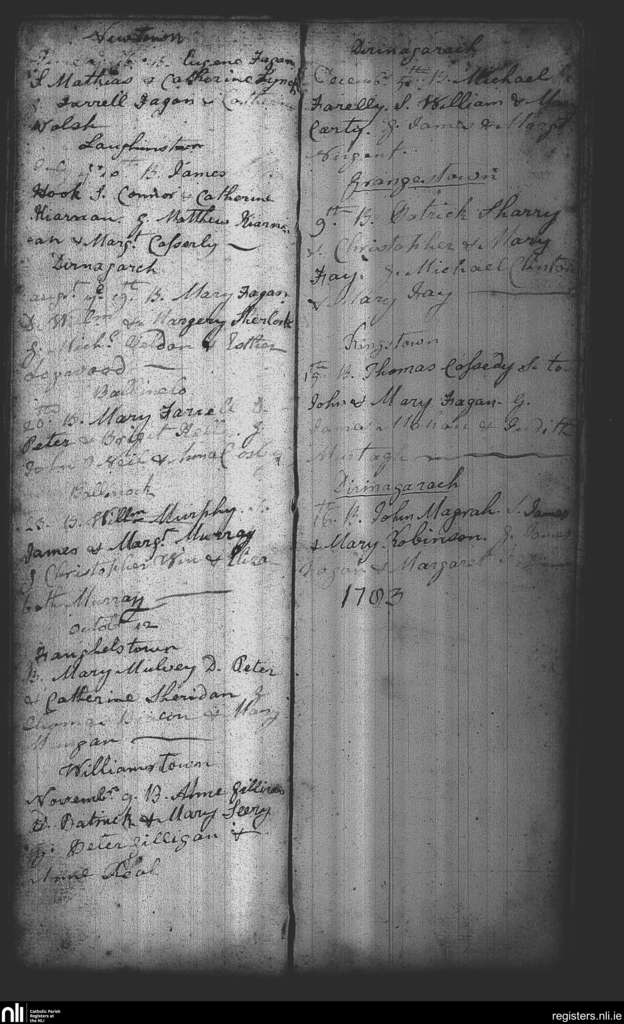 Newtown
B. Eugene Fagan
S Mathias & Catherine Lynch
g. Farrell Fagan & Catherine
Walsh
Laughinstown
B. James
Hook S. Connor & Catherine
Kiarnan. g Matthew Kiarn-
an & Margt. Casserly
Dirnagarah
19th. B. Mary Fagan
D. Willm & Margery Sherlock
g. Michl. Weldon & Esther
Ballinclo
20th. B. Mary Farrell D.
Peter & Bridget Kelly. g.
John O Neil & Anna
Billinock
25. B. Willm Murphy. S.
James & Margt. Murray
g Christopher Win & Eliza
beth Murray
Octobr 12
Faughelstown
B. Mary Mulvey D. Peter
& Catherine Sheridan g
Thomas & Mary
Mungan
Williamstown
Novembr 9. B. Anne gilligan
D. Patrick & Mary Seery
g. Peter gilligan &
Anne Real
Dirinagarach
Decembr 5th B. Michael
Farelly. S. William & Mary
Carty. g. James & Margt
Nugent.
Grangestown
9th. B. Patrick Sharry
S. Christopher & Mary
Fay. g. Michael Clinton
& Mary Fay
Kingstown
15th. B. Thomas Cassedy S. to
John & Mary Fagan. g.
James & Judith
Murtagh
Dirinagarach
16. B. John Magrah S. James
& Mary Robinson. g. James
Fagan & Margaret
1783
nli
Catholic Parish
Registers at
the NLI
registers.nli.ie